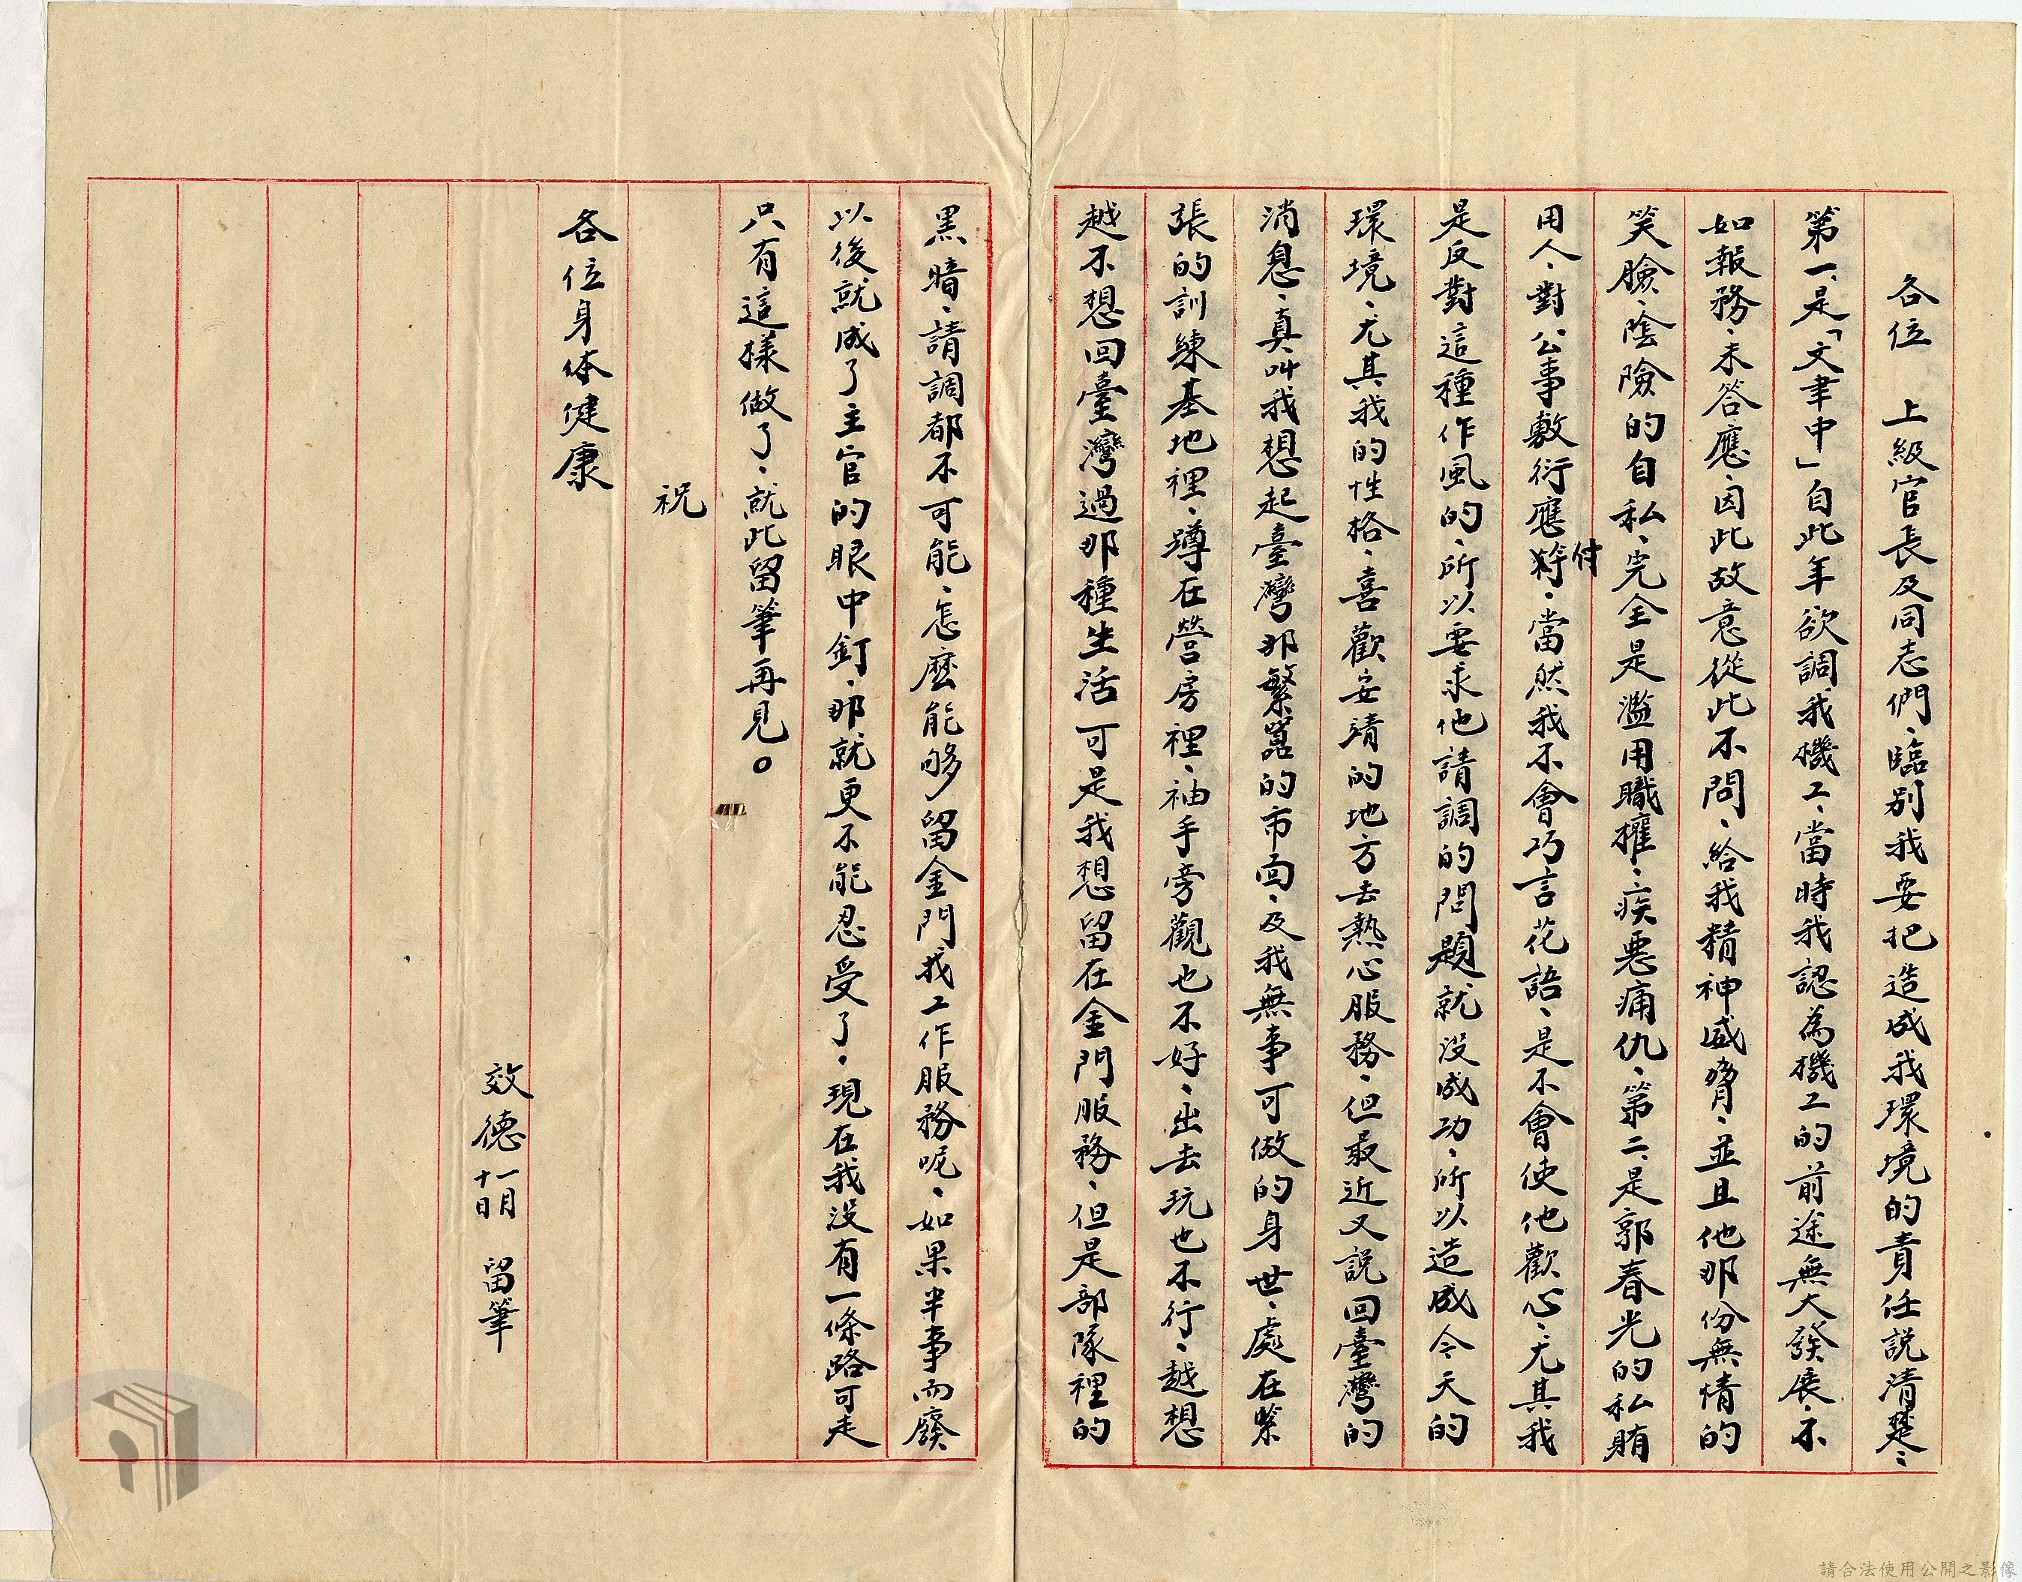 各位　上級官長及同志們、臨別我要把造成我環境的責任說清楚、
第一、是「文聿中」自此年欲調我機工、當時我認為機工的前途無大發展、不
如報務、未答應、因此故意從此不問、給我精神威脅、並且他那份無情的
笑臉、陰險的自私、完全是濫用職權、疾惡痛仇、第二、是郭春光的私賄
用人、對公事敷衍應付、當然我不會巧言花語、是不會使他歡心、尤其我
是反對這種作風的、所以要求他請調的問題就没成功、所以造成今天的
環境、尤其我的性格、喜歡安靖的地方去熱心服務、但最近又說回臺灣的
消息、真叫我想起臺灣那繁囂的市面、及我無事可做的身世、處在緊
張的訓練基地裡、蹲在營房裡、袖手旁觀也不好、出去玩也不行、越想
越不想回臺灣過那種生活可是我想留在金門服務、但是部隊裡的
黑暗、請調都不可能、怎麽能够留金門找工作服務呢、如果半事而廢
以後就成了主官的眼中釘、那就更不能忍受了、現在我没有一條路可走
只有這樣做了、就此留筆再見。
祝
各位身体健康
效德 十一月十日 留筆
請合法使用公開之影像